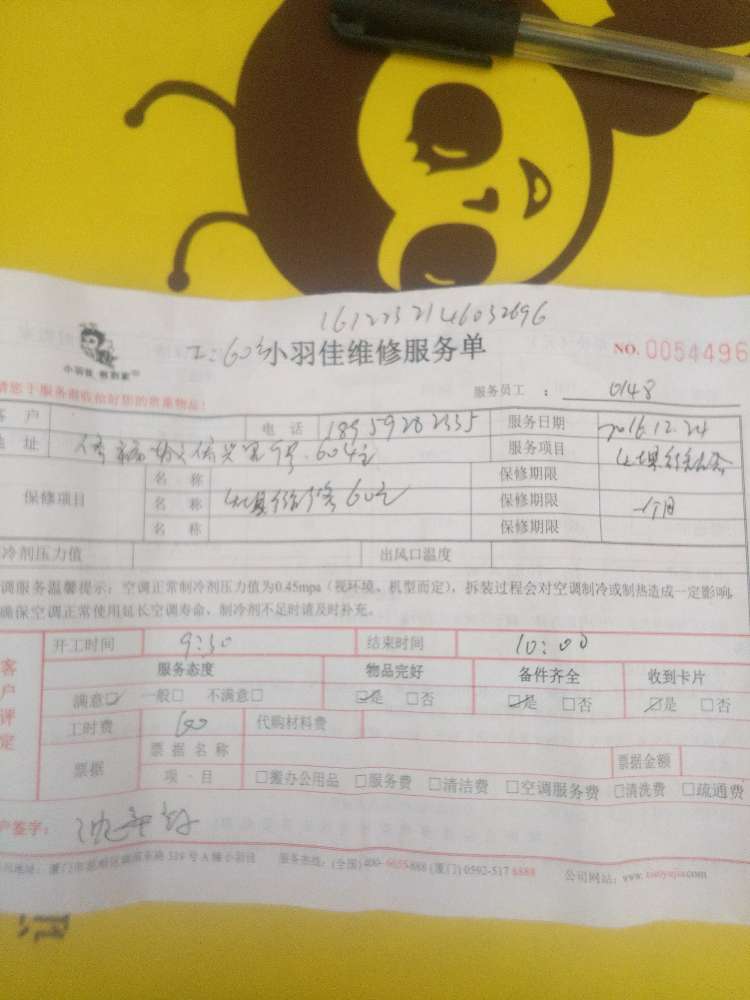 1612232146032696
工:60元 小羽佳维修服务单 NO. 0054496
小羽佳
请您于服务前收拾好您的贵重物品!
服务员工 : 0148
客 户 电 话 18959282335 服务日期 2016.12.24
地 址 604室 服务项目
保修项目 名 称 保修期限
名 称 60元 保修期限 一个月
名 称 保修期限
冷剂压力值 出风口温度
调服务温馨提示:空调正常制冷剂压力值为0.45mpa(视环境、机型而定),拆装过程会对空调制冷或制热造成一定影响,
确保空调正常使用延长空调寿命、制冷剂不足时请及时补充。
开工时间 9:30 结束时间 10:00
客户评定 服务态度 物品完好 备件齐全 收到卡片
满意☑ 一般□ 不满意□ ☑是 □否 ☑是 □否 ☑是 □否
工时费 60 代购材料费
票据 票据名称 票据金额
项 · 目 □搬办公用品 □服务费 □清洁费 □空调服务费 □清洗费 □疏通费
户签字:
地址: 339号A幢小羽佳 服务热线:(全国)400-6655-888 (厦门)0592-517 8888 公司网站:www.xiaoyujia.com